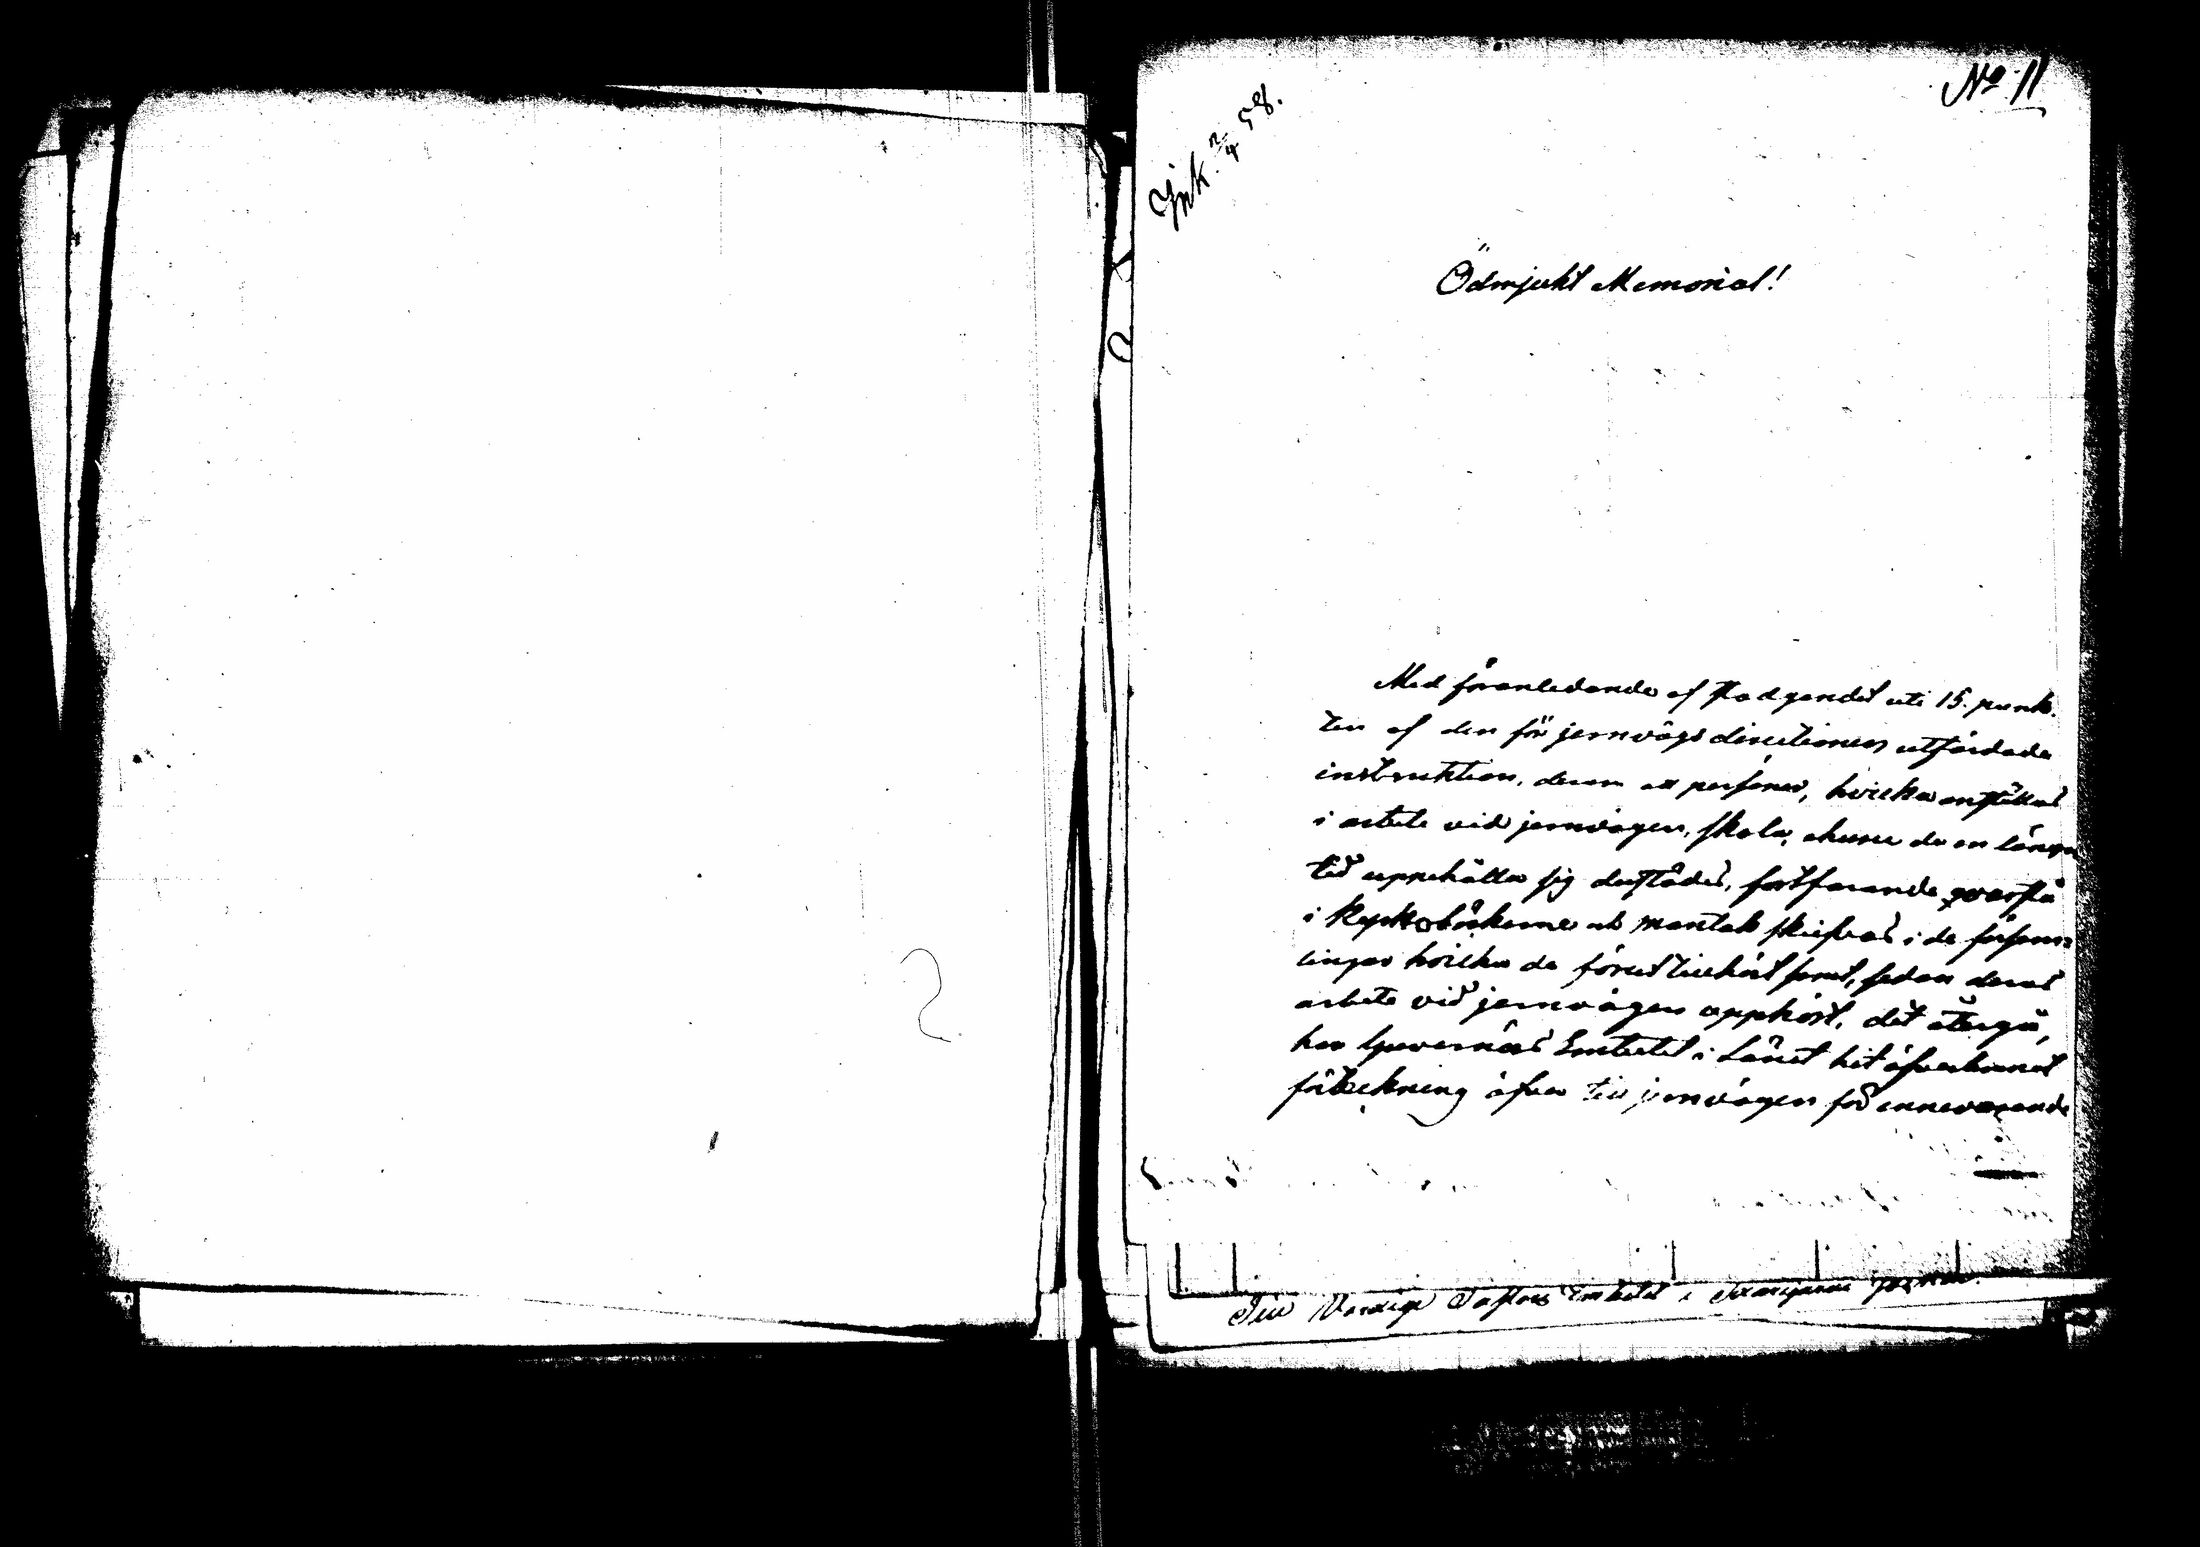 No 11
Ink. 2/4 58.
Ödmjukt Memorial!
Med föranledande af stadgandet uti 15. punk-
ten af den för jernvägs directionen utfärdade
instruktion, derom att personer, hvilka anställas
i arbete vid jernvägen, skola, ehuru de en längre
tid uppehålla sig derstädes, fortfarande qvarstå
i kyrkoböckerne och mantalsskrifvas i de församlin-
lingar hvilka de förut tillhört samt, sedan deras
arbete vid jernvägen upphört, dit återgå,
har Guvernörs Embetet i Länet hit öfversändt
förteckning öfver till jernvägen för innevarande
Till Vördige Pastors Embetet i